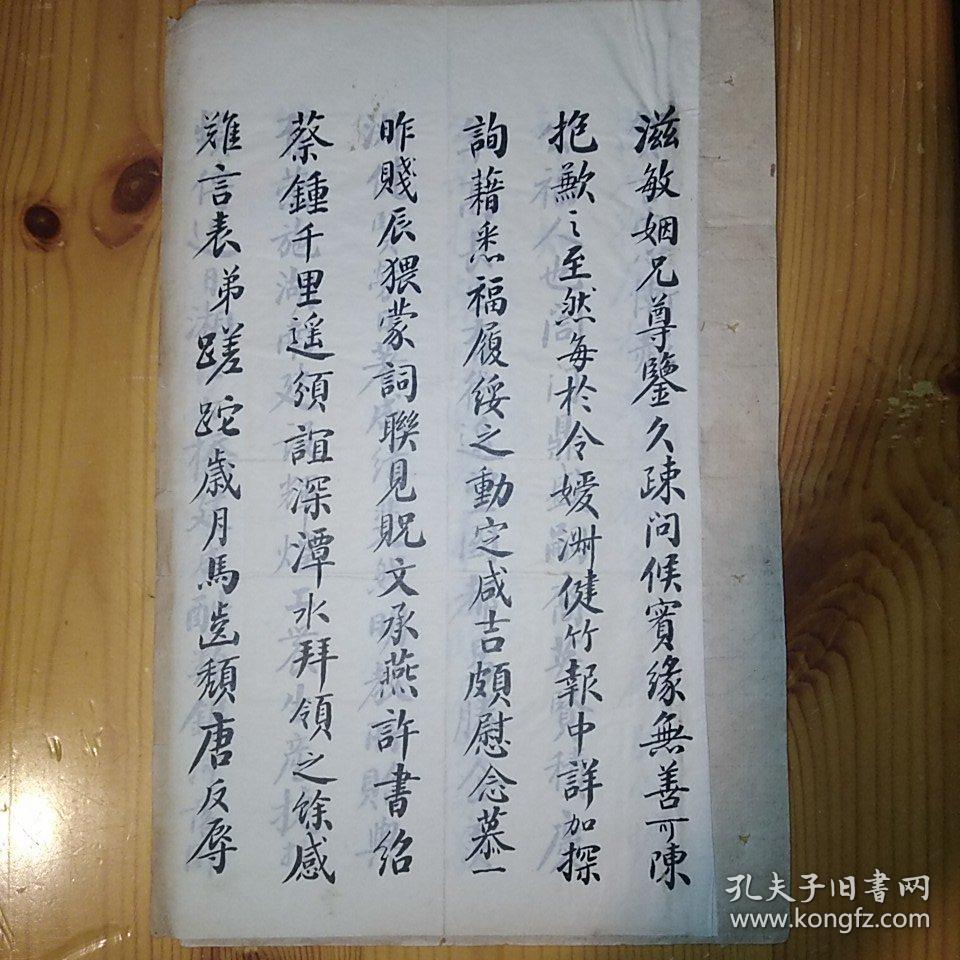 滋敏姻兄尊鑒久疎问候實緣無善可陳
抱歉之至然每於令嫒淋健竹報中詳加探
詢藉悉福履綏之動定咸吉頗慰念慕一
昨賤辰猥蒙詞聯見貺文承燕許書紹
蔡鍾千里遥頒誼深潭水拜領之餘感
難言表弟蹉跎歲月馬齒頹唐反辱
孔夫子旧书网
www.kongfz.com